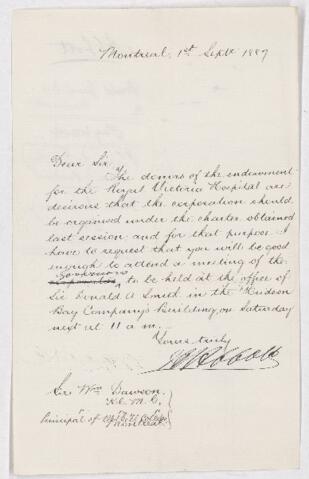 Montreal, 1st Septr 1887
Dear Sir
The donors of the endowment
for the Royal Victoria Hospital are
desirous that the corporation should
be organised under the charter obtained
last session and for that purpose I
have to request that you will be good
enough to attend a meeting of the
Governors
to be held at the office of
Sir Donald A Smith in the Hudson
Bay Company's Building, on Saturday
next at 11 a.m.
Yours truly
Abbott
Sir Wm Dawson
K.C.M.G.
Principal of College
Montreal